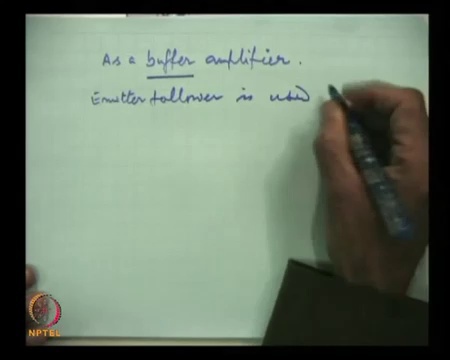 As a buffer amplifier.
Emitter follower is used
NPTEL